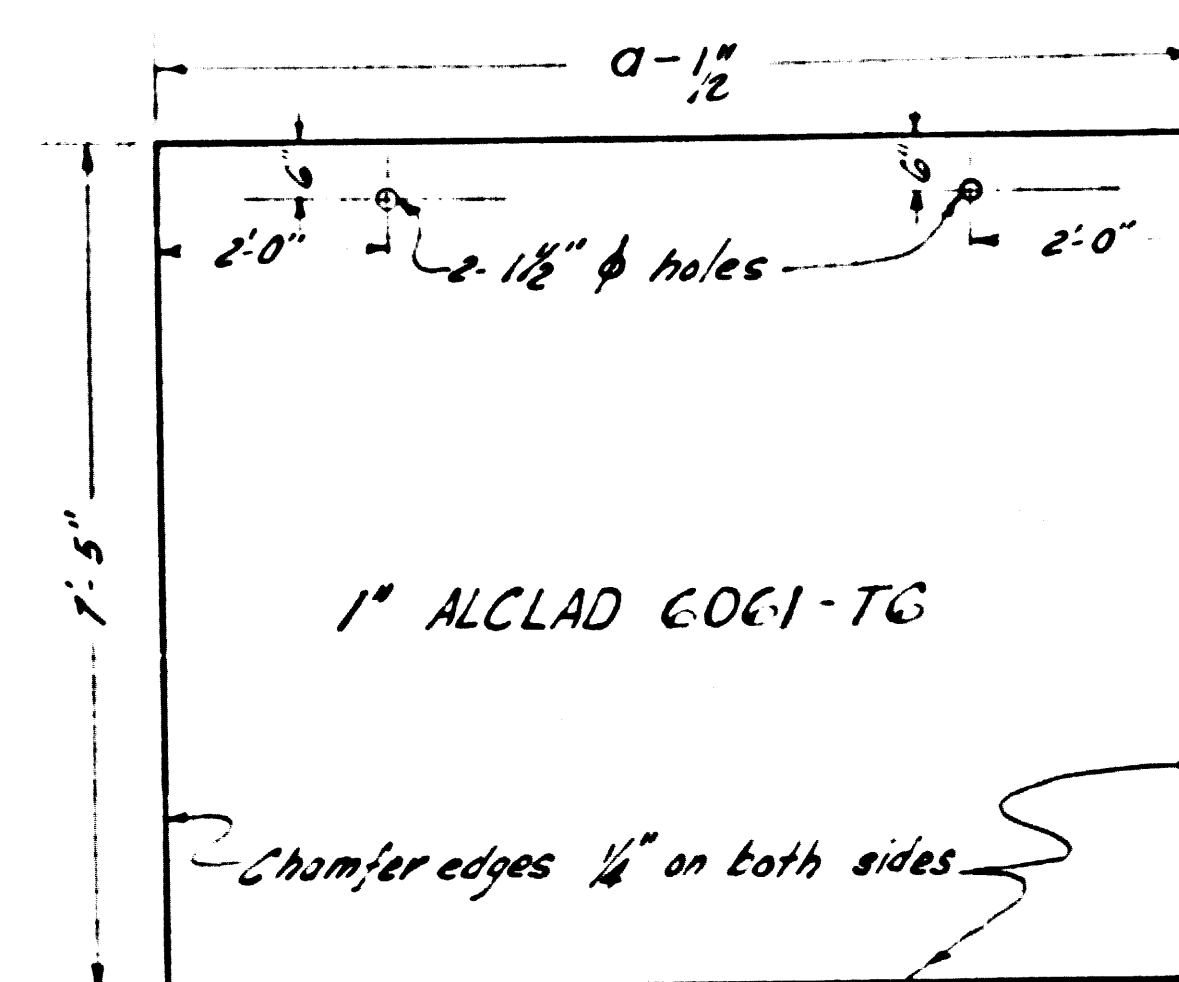 a - 1/2"
6"
6"
2'-0"
2'-0"
2- 1 1/2" φ holes
7'- 5"
1" ALCLAD 6061-T6
Chamfer edges 1/4" on both sides